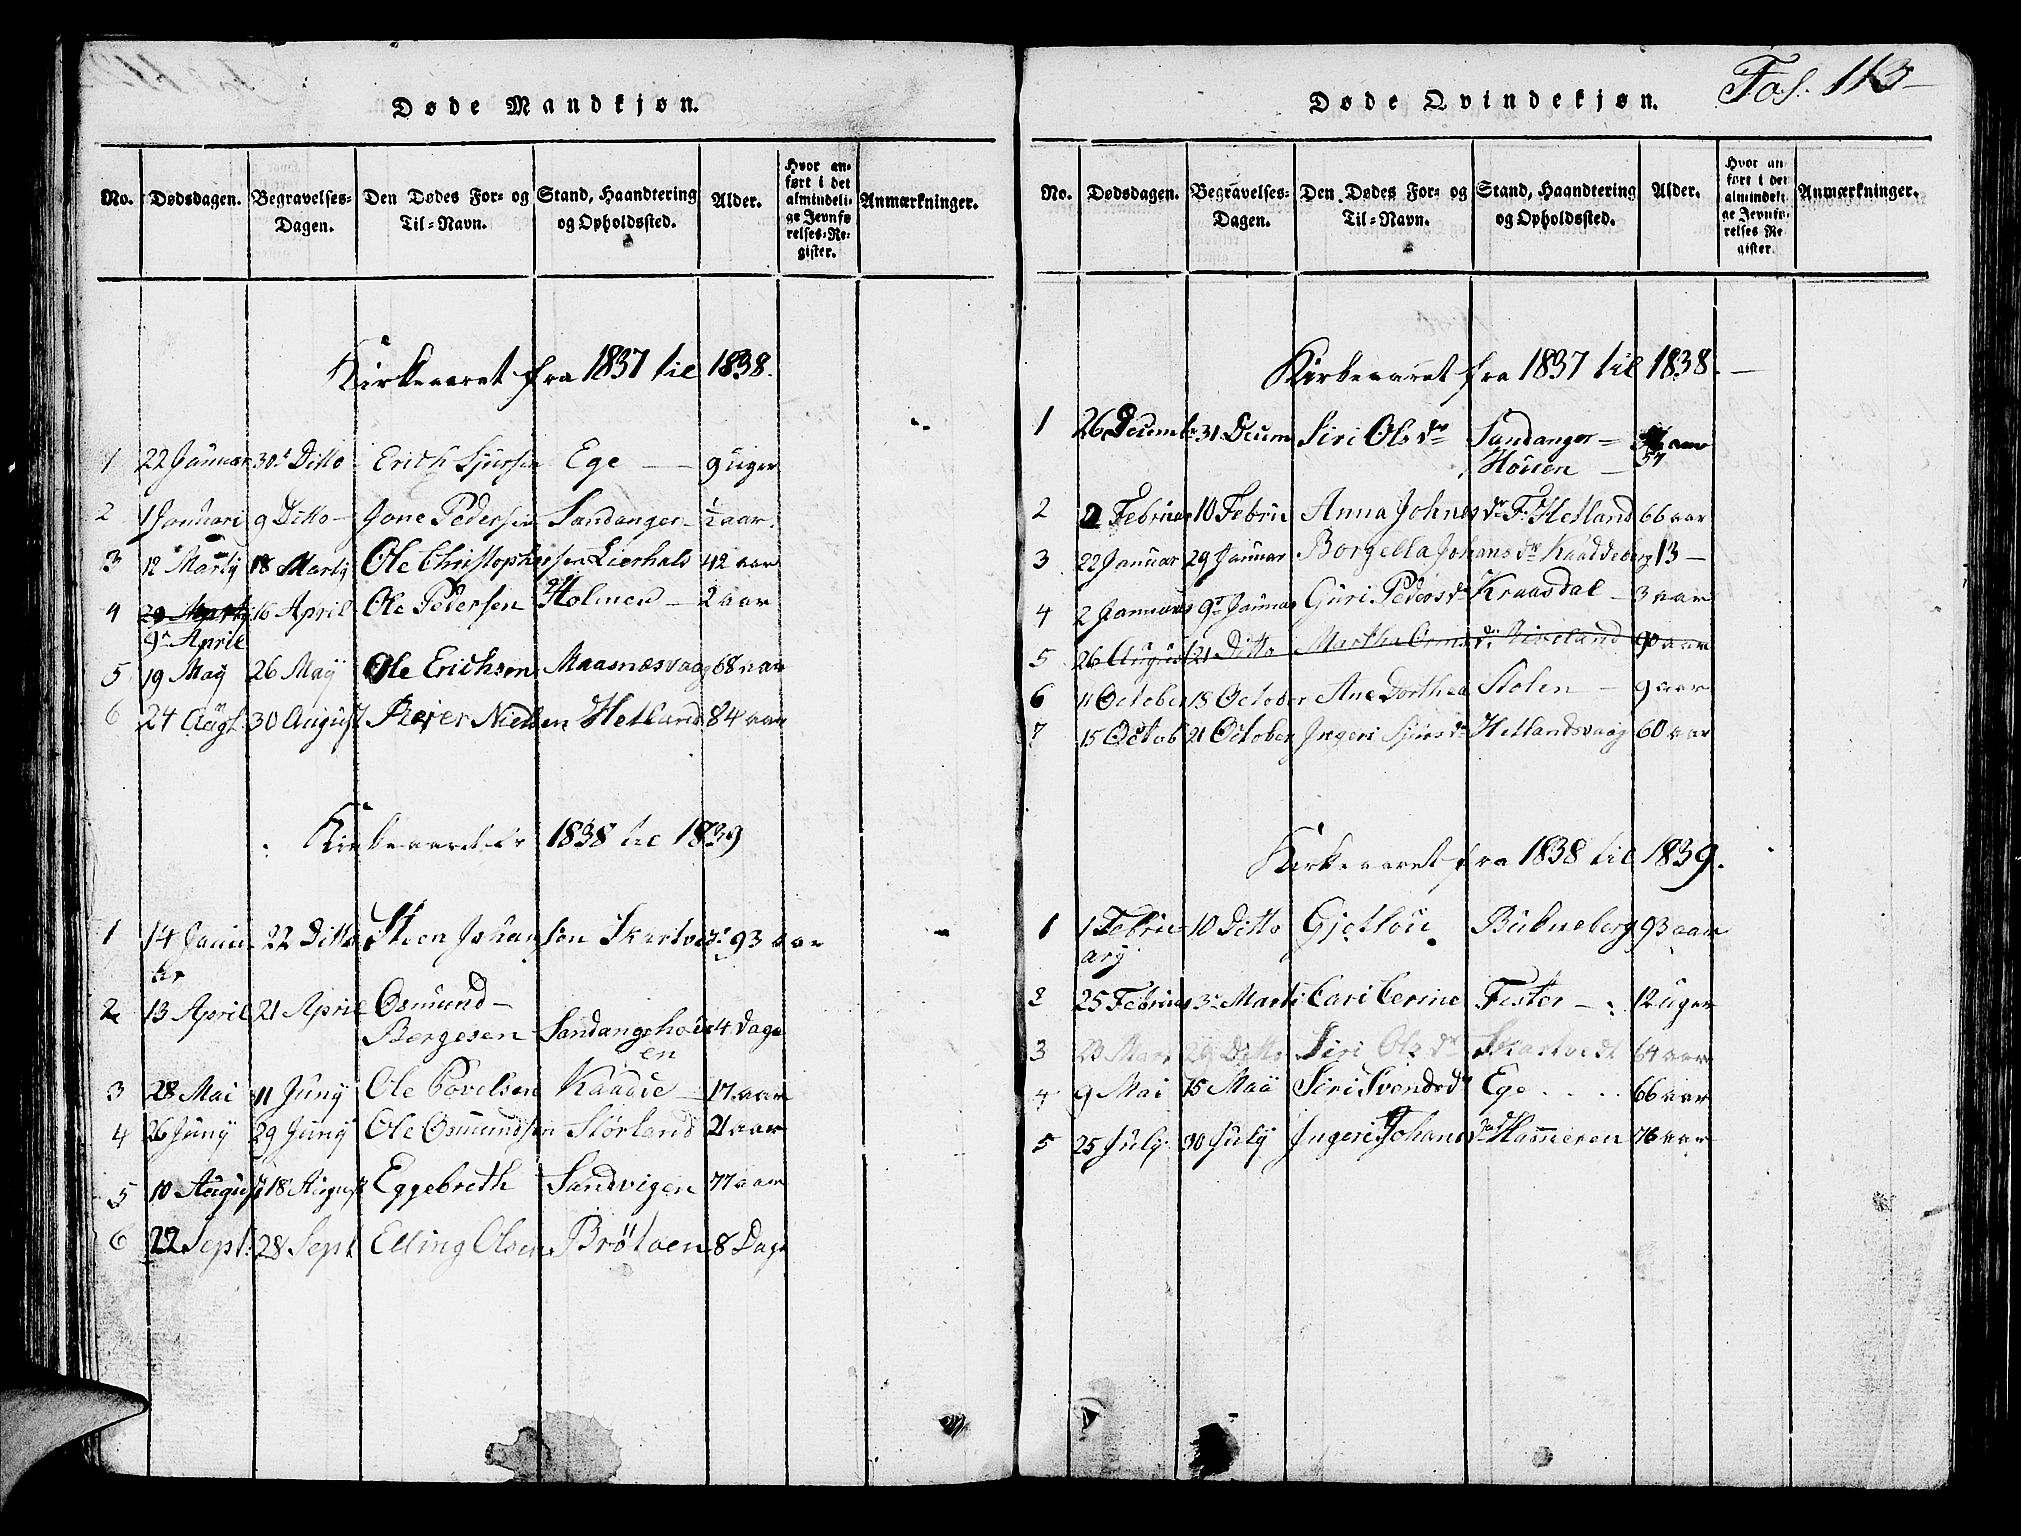 Døde Mandkjøn.
No. Dødsdagen. Begravelses-Dagen. Den Dødes For- og Til-Navn. Stand, Haandtering og Opholdssted. Alder. Hvor anført i det almindelige Jevnførelses-Register. Anmærkninger.
Kirkeaaret fra 1837 til 1838.
1 22 Januar 30t Ditto Erich Sjursen Ege 9 uger
2 1 Januari 9 Ditto Jone Pedersen Sandanger ½ aar.
3 12 Marty 18 Marty Ole Christophersen Lierhals 42 aar
4 20 Marty 16 April Ole Pedersen Holmen 2 aar
9de April
5 19 Maÿ 26 Maÿ Ole Erichsen Maasnæsvaag 68 aar
6 24 Augt. 30 August Reier Nielsen Hetland 84 aar
Kirkeaaret fr 1838 til 1839
1 14 Janu 22 Ditto Steen Johanson Skartve 93 aar
ar
2 13 April 21 April Osmund
Bergesen Sandangehou 4 Dage
en
3 28 Mai 11 Junÿ Ole Povelsen Kaade 17 aar
4 26 Junÿ 29 Junÿ Ole Osmundsen Størland 21 aar
5 10 August 18 August Eggebreth Sandvigen 77 aar
6 22 Sept. 28 Sept Elling Olsen Brötoen 8 Dage
Døde Qvindekjøn. Fol. 113
No. Dødsdagen. Begravelses-Dagen. Den Dødes For- og Til-Navn. Stand, Haandtering og Opholdssted. Alder. Hvor anført i det almindelige Jevnførelses-Register. Anmærkninger.
Kirkeaaret fra 1837 til 1838.
1 26 Decemb 31 Decem Siri Olsdr Sandanger aar
Houen 57
2 2 Februar 10 Febru Anna Johnsdr F. Hetland 66 aar
3 22 Januar 29 Januar Borgella Johansdr Kaaddeberg 13
4 2 Januar 9de Januar Guri Pedersdr Kraasdal 3 aar
5 26 August 21 Ditto Martha Ormsdr. 90 aar
6 11 October 18 October Ane Dorthea Stolen 9 aar
7 15 Octob 21 October Ingeri Sjursdr Hetlandsvaag 60 aar
Kirkeaaret fra 1838 til 1839.
1 1 Febru 10 Ditto Gjetlou Bukneberg 93 aar
ary
2 25 Februa 3de Marti Cari Cerine Fister 12 uger
3 23 Mart 29 Ditto Siri Olsdr Skartvedt 64 aar
4 9 Mai 15 Maii Siri Svendsdr Ege 66 aar
5 25 Julÿ 30 Julÿ Ingeri Johansdr Hammeren 76 aar